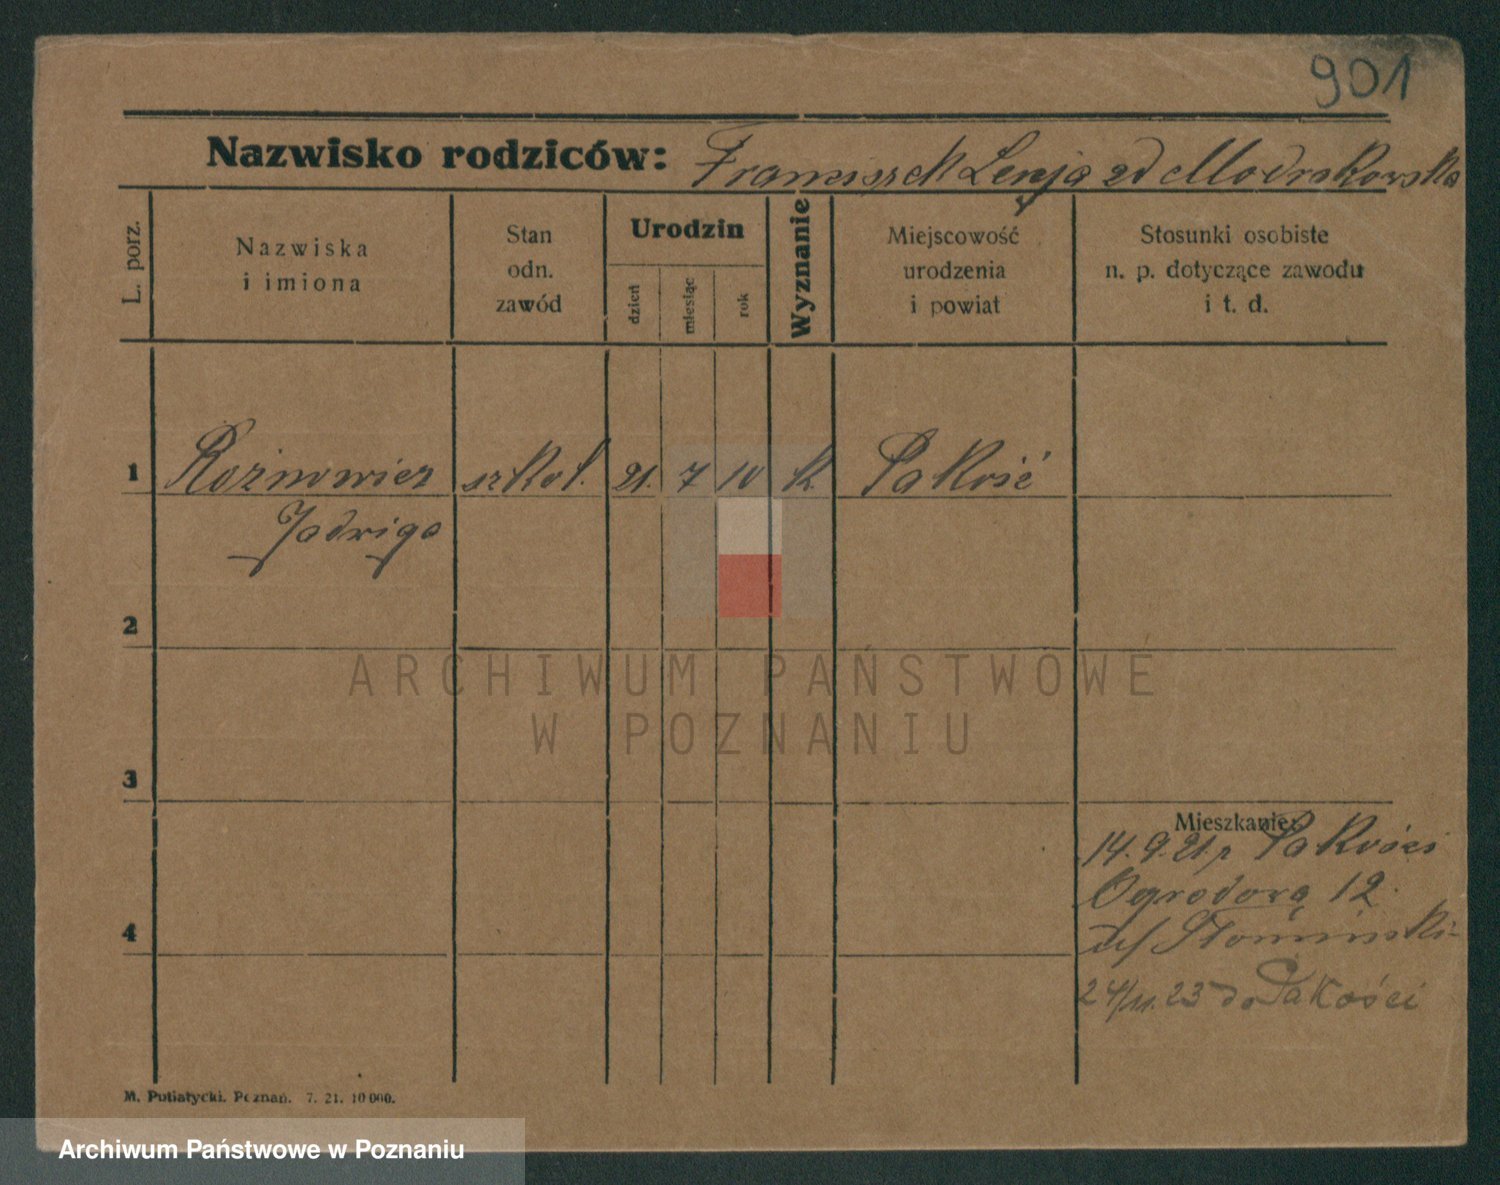 901
Nazwisko rodziców: Franciszek Lenja zd Modrakowska
L. porz.
Nazwiska
i imiona
Stan
odn.
zawód
Urodzin
dzień
miesiąc
rok
Wyznanie
Miejscowość
urodzenia
i powiat
Stosunki osobiste
n. p. dotyczące zawodu
i t. d.
1 Rożnowicz szkol. 21. 7 10 k. Pakość
Jadwiga
2
ARCHIWUM PAŃSTWOWE
W POZNANIU
3
Mieszkanie:
14. 9. 21 z Pakości
Ogrodowa 12
Słomiński
4
24/11. 23 do Pakości
M. Putiatycki. Poznań. 7. 21. 10 000.
Archiwum Państwowe w Poznaniu